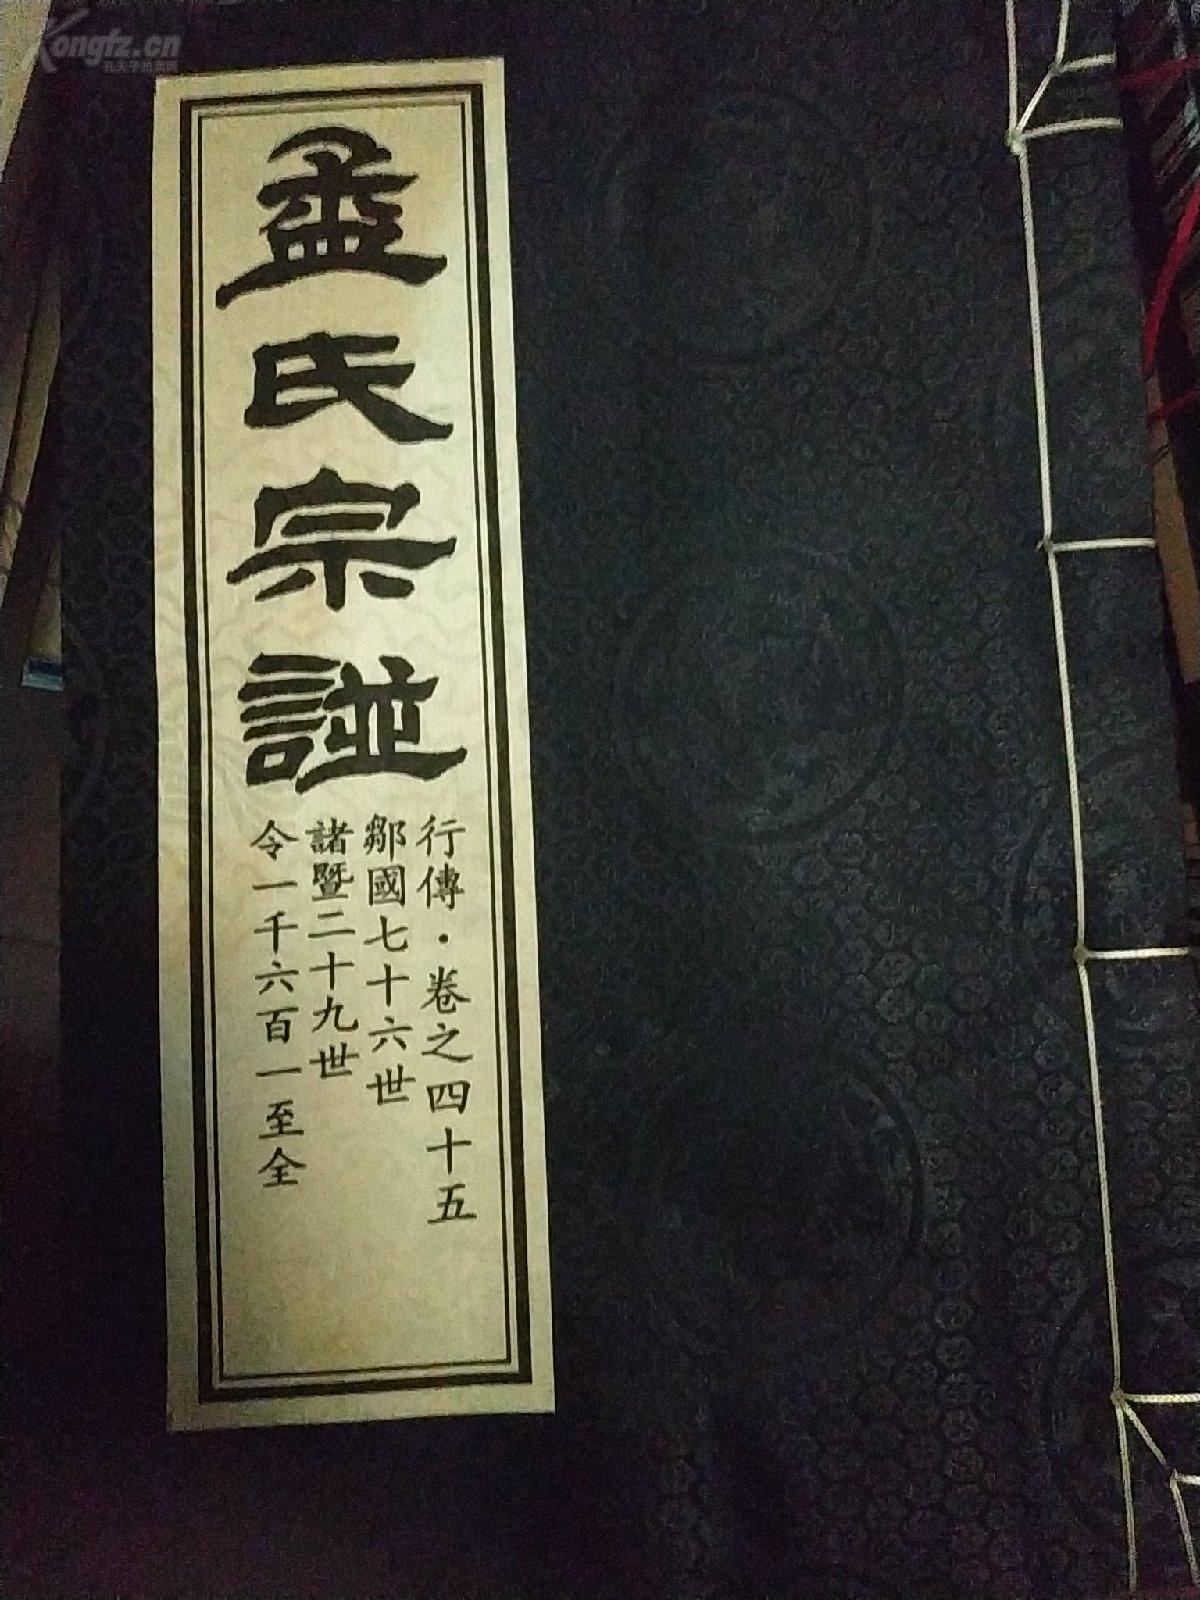 孟氏宗譜
行傳·卷之四十五
鄒國七十六世
諸暨二十九世
令一千六百一至全
Kongfz.cn